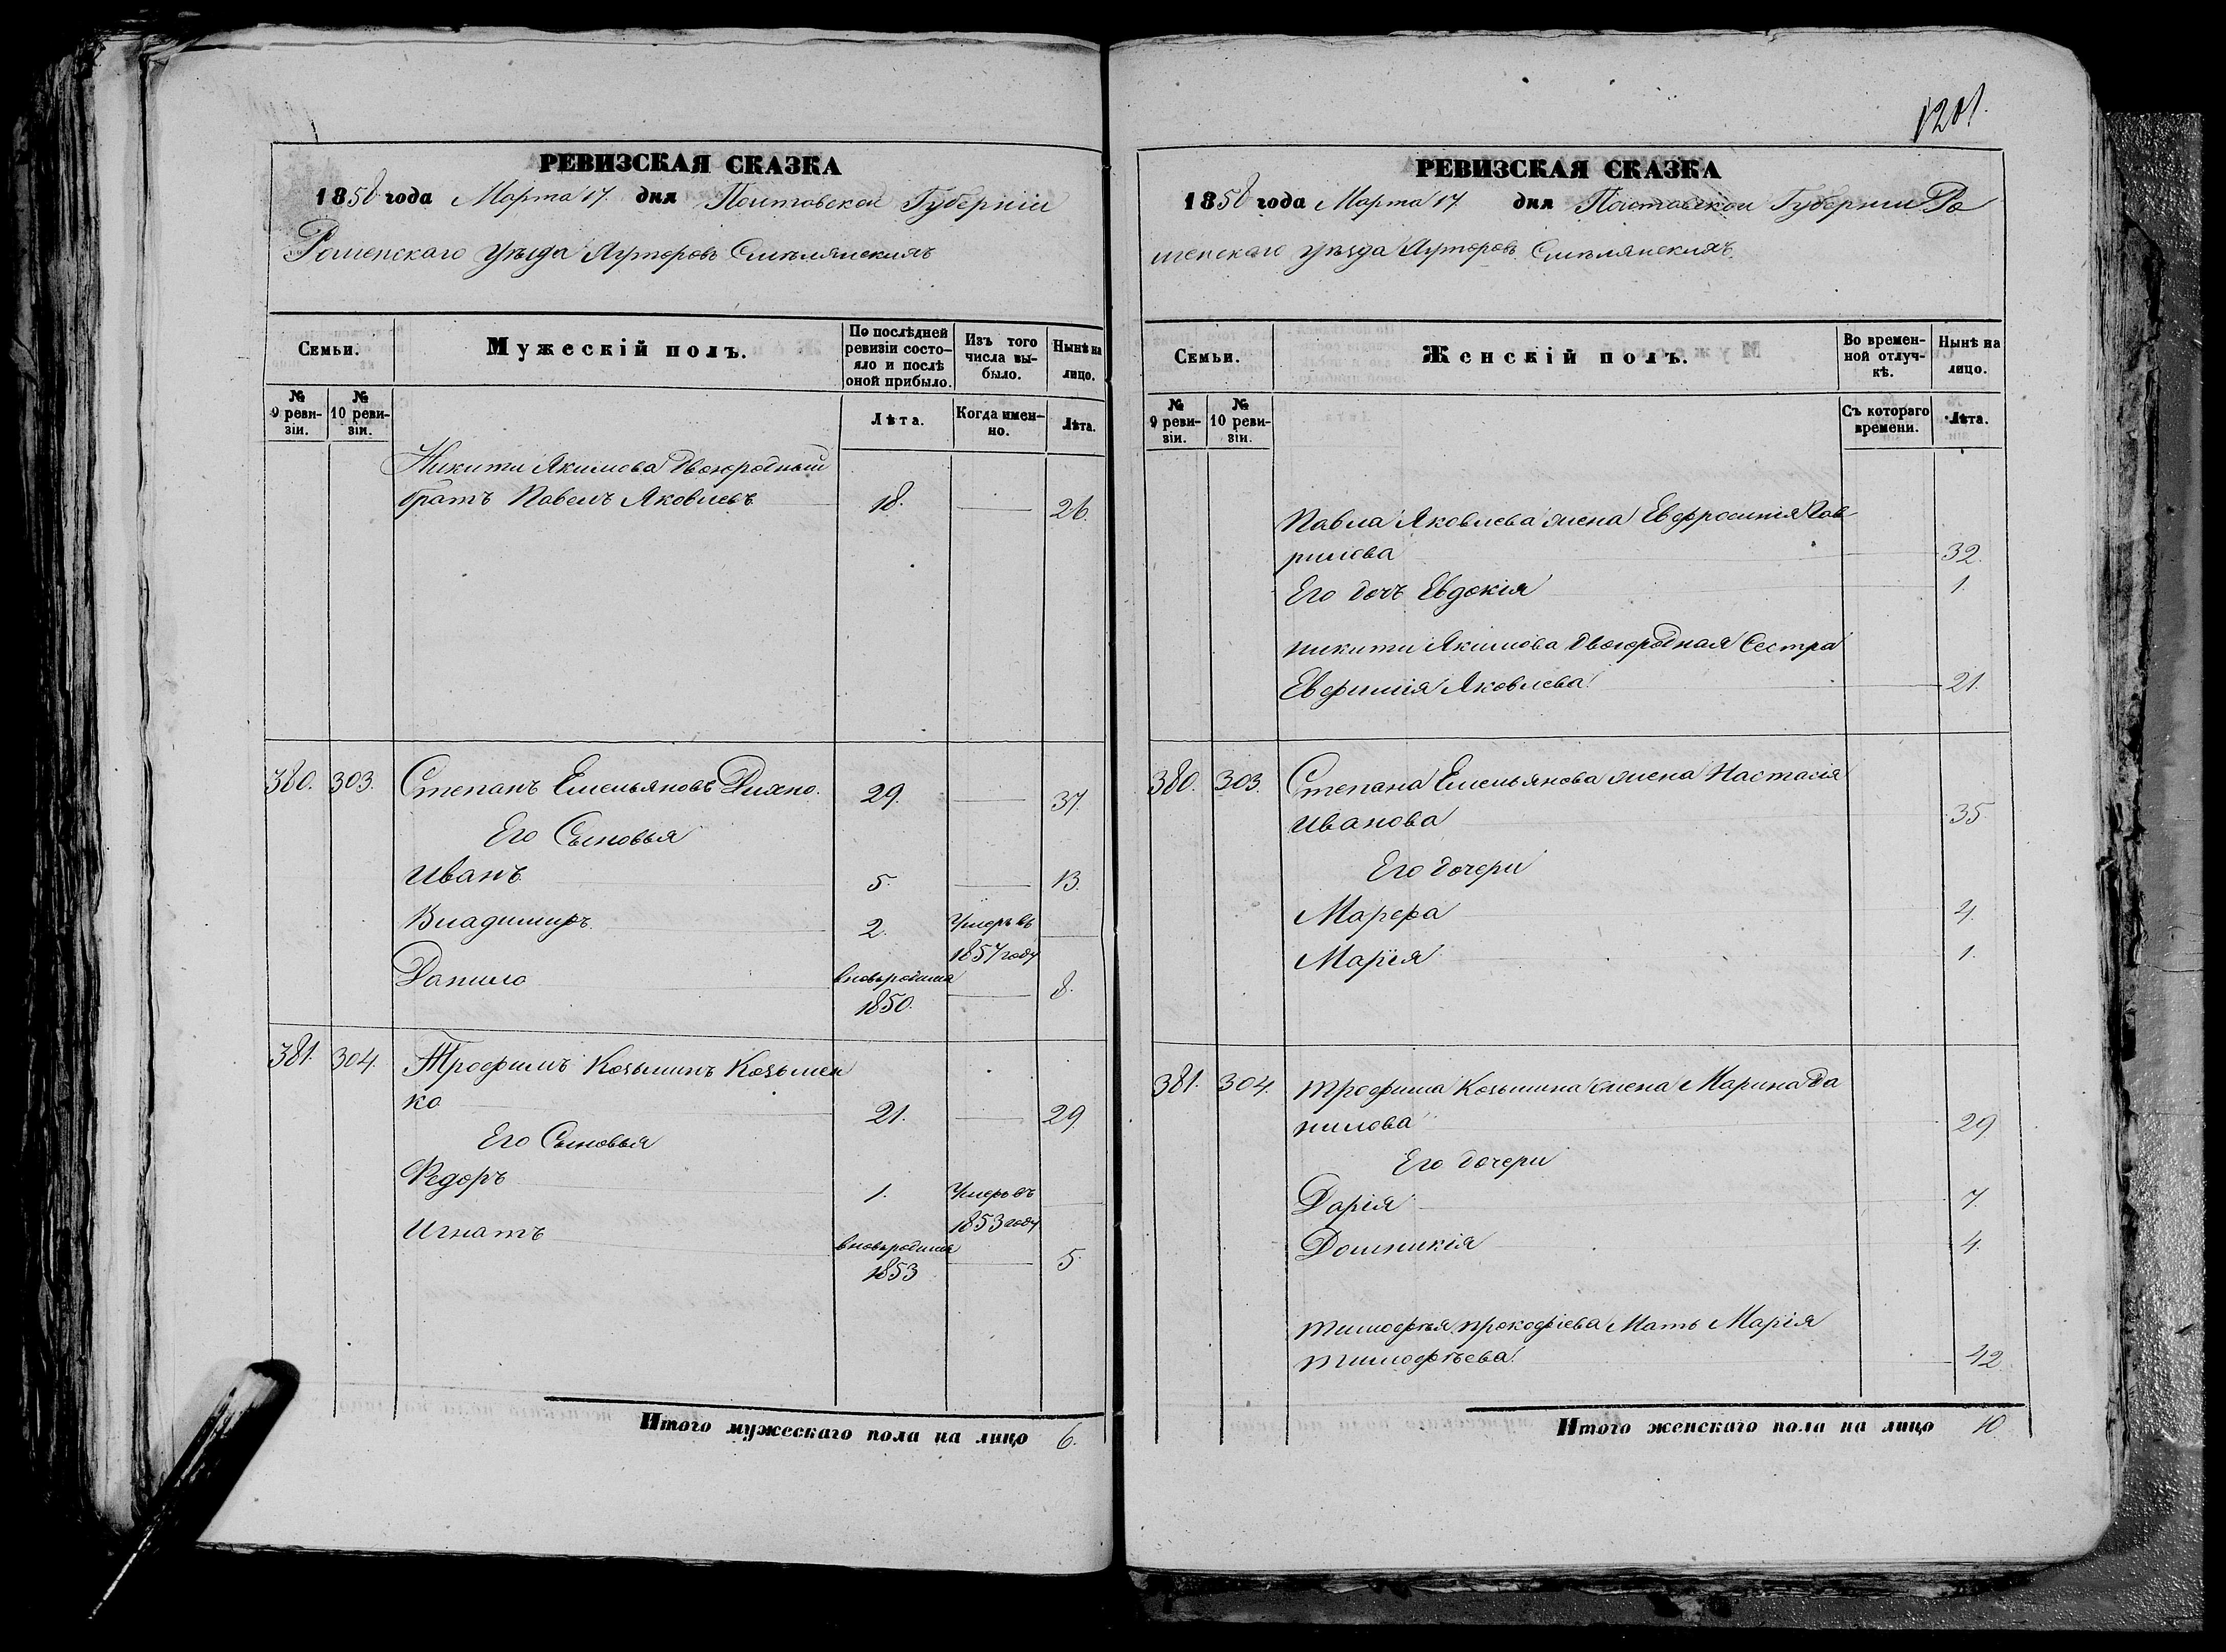 РЕВИЗСКАЯ СКАЗКА
1858 года Марта 17. дня Полтавской Губерніи
Роменскаго уѣзда Хуторовъ Смѣлянскихъ
Семьи.
Мужескій полъ.
По послѣдней ревизіи состо-
яло и послѣ
оной прибыло.
Изъ того
числа вы-
было.
Нынѣ на
лицо.
№
9 реви-
зіи.
№
10 реви-
зіи.
Лѣта.
Когда имен-
но.
Лѣта.
Никиты Якимова двоюродный
братъ Павелъ Яковлевъ 18. 26.
380. 303. Степанъ Емельяновъ 29. 37.
Его Сыновья
Иванъ 5. 13.
Владимиръ 2. Умеръ въ
1857 году
Данило вновьродился 8.
1850.
381. 304. Трофимъ Козьминъ Козьмен
ко 21. 29
Его Сыновья
Федоръ 1. Умеръ въ
1853 году
Игнатъ вновьродился 5.
1853
Итого мужескаго пола на лицо 6.
1201.
РЕВИЗСКАЯ СКАЗКА
1858 года Марта 17. дня Полтавской Губерніи Ро
менскаго уѣзда Хуторовъ Смѣлянскихъ.
Семьи.
Женскій полъ.
Во времен-
ной отлуч-
кѣ.
Нынѣ на
лицо.
№
9 реви-
зіи.
№
10 реви-
зіи.
Съ котораго
времени.
Лѣта.
Павла Яковлева жена Евфросинія Гав
рилова 32.
Его дочь Евдокія 1.
Никиты Якимова двоюродная Сестра
Евфимія Яковлева 21.
380. 303. Степана Емельянова жена Настасія
Иванова 35
Его дочери
Марфа 4.
Марія 1.
381. 304. Трофима Козьмина жена Марина Да
нилова 29
Его дочери
Дарія 7.
Домникія 4.
Тимофѣя Прокофіева Мать Марія
Тимофѣева 42
Итого женскаго пола на лицо 10